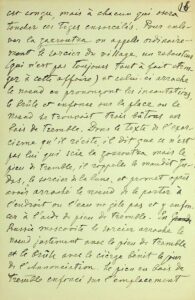 16
est conçu, mais à chacun qui osera
toucher ces tiges ensorcelées. Pour enle-
ver la zakroutka on appelle ordinaire-
ment le sorcier du village, un rebouteur
(qui n'est pas toujours tout à fait étran-
ger à cette affaire) et celui-ci arrache
le nœud en prononçant les incantations,
le brûle et enfonce sur la place où le
nœud se trouvait trois bâtons en
bois de tremble. Dans le texte de l'exor-
cisme qu'il récite, il dit que ce n'est
pas lui qui scie la zakroutka mais le
pieu de tremble, il appelle le maudit Jou-
das, le sorcier de la lune, et promet après
avoir arraché le nœud de le porter à
l'endroit où l'eau ne gèle pas et y enfon-
cer à l'aide du pieu de tremble. En grande
Russie le sorcier arrache le
nœud justement avec le pieu de tremble
et le brûle avec le cierge bénit le jour
de l'Annonciation. Le pieu en bois de
tremble enfoncé sur l'emplacement